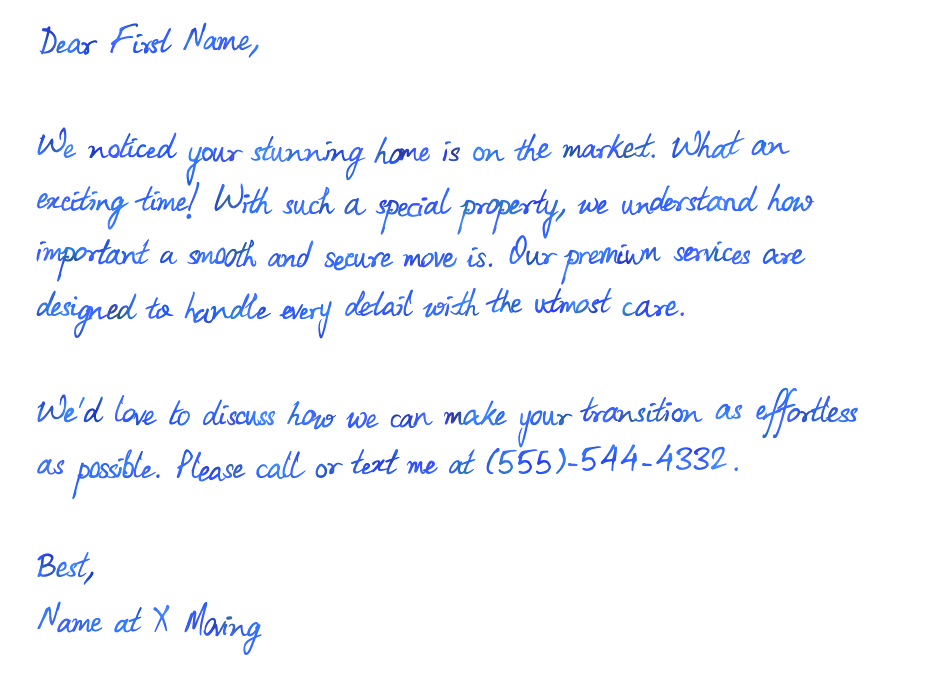 Dear First Name,
We noticed your stunning home is on the market. What an
exciting time! With such a special property, we understand how
important a smooth and secure move is. Our premium services are
designed to handle every detail with the utmost care.
We'd love to discuss how we can make your transition as effortless
as possible. Please call or text me at (555)-544-4332.
Best,
Name at X Moving